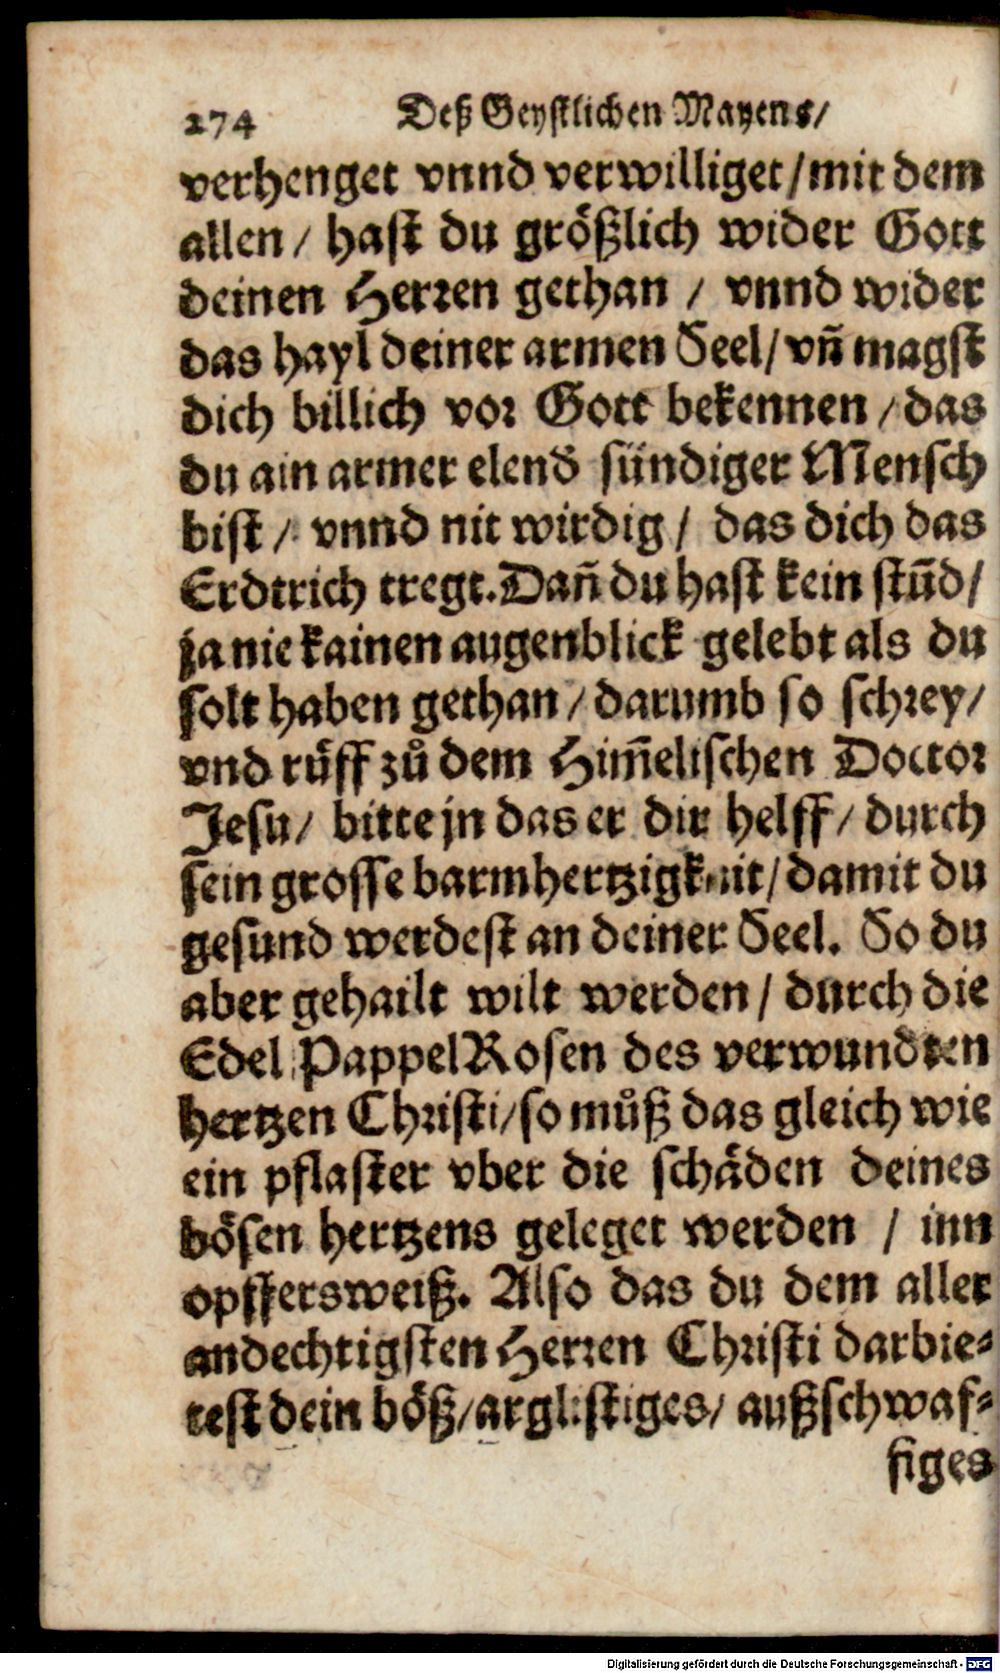 274 Deß Geystlichen Mayens/
verhenget vnnd verwilliget/mit dem
allen/ hast du größlich wider Gott
deinen Herren gethan / vnnd wider
das hayl deiner armen Seel/vñ magst
dich billich vor Gott bekennen/das
du ain armer elend sündiger Mensch
bist/ vnnd nit wirdig/ das dich das
Erdtrich tregt. Dañ du hast kein stūd/
ja nie kainen augenblick gelebt als du
solt haben gethan/darumb so schrey/
vnd rüff zů dem Him̃elischen Doctor
Jesu/ bitte jn das er dir helff/durch
sein grosse barmhertzigkait/damit du
gesund werdest an deiner Seel. So du
aber gehailt wilt werden/durch die
Edel PappelRosen des verwundten
hertzen Christi/so můß das gleich wie
ein pflaster vber die schäden deines
bösen hertzens geleget werden / inn
opffersweiß. Also das du dem aller
andechtigsten Herren Christi darbie=
test dein böß/arglistiges/ außschwaf=
figes
Digitalisierung gefördert durch die Deutsche Forschungsgemeinschaft - DFG